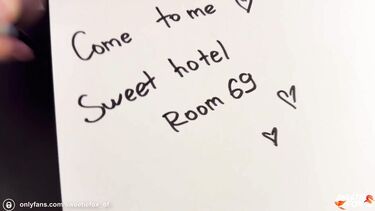 Come to me ♡
Sweet hotel
Room 69 ♡
♡
onlyfans.com/sweetiefox_of